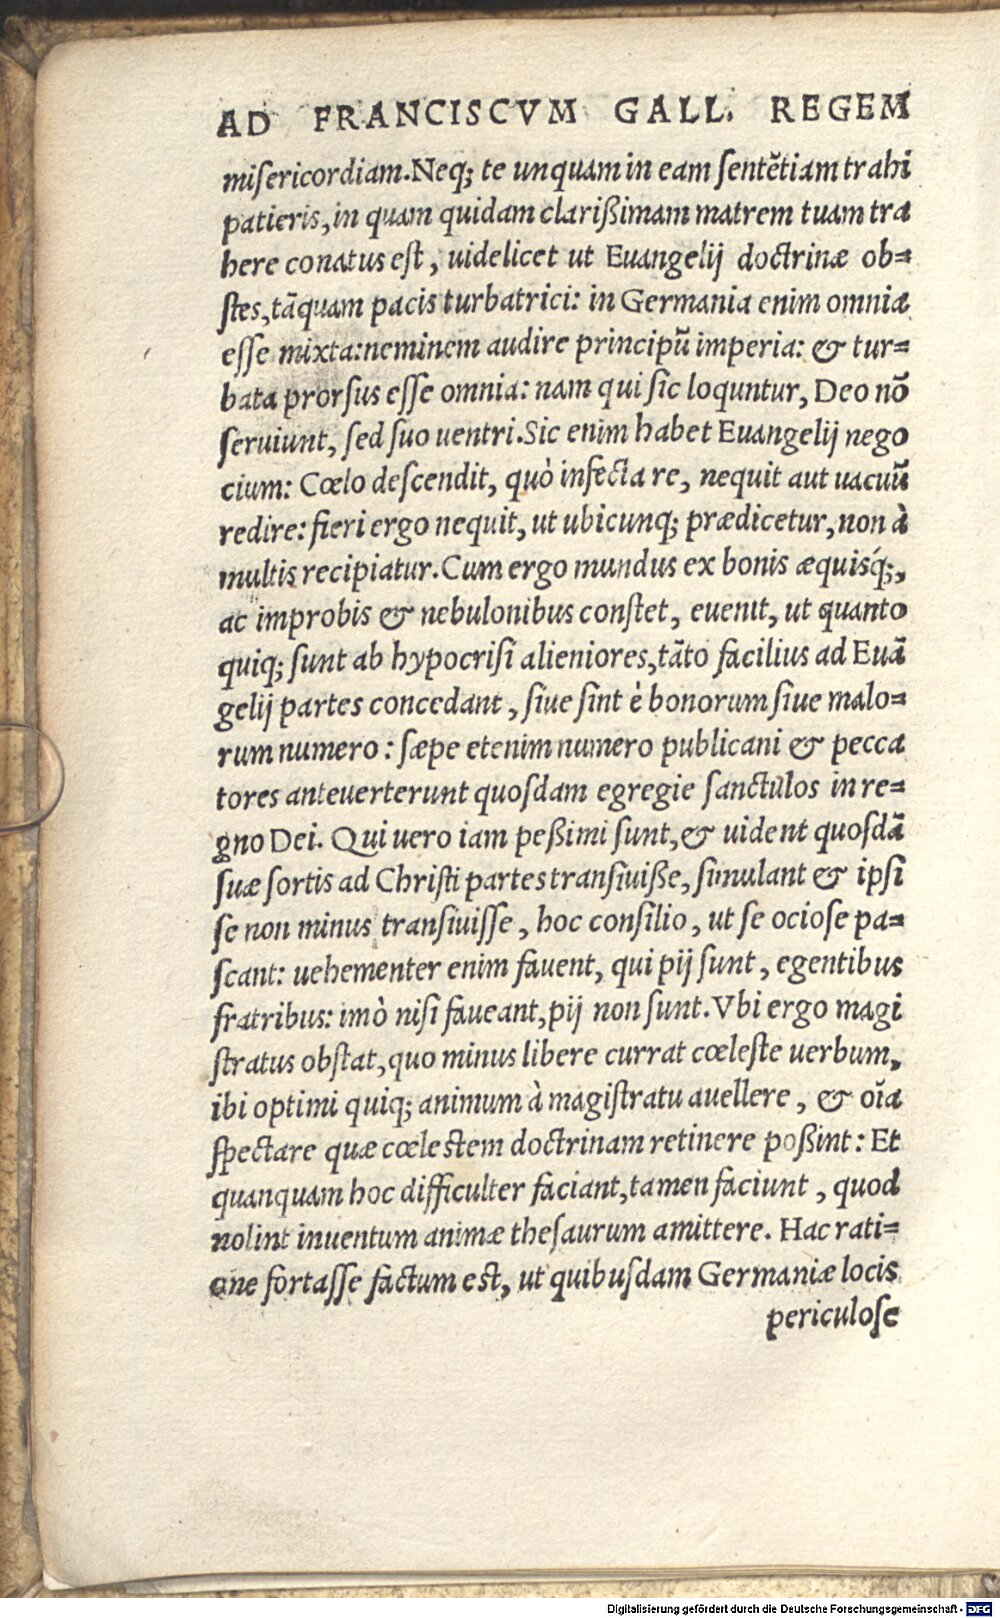 AD FRANCISCVM GALL. REGEM
misericordiam. Neq; te unquam in eam sentẽtiam trahi
patieris, in quam quidam clarißimam matrem tuam tra
here conatus est, uidelicet ut Euangelij doctrinæ ob=
stes, tãquam pacis turbatrici: in Germania enim omnia
esse mixta: neminem audire principũ imperia: & tur=
bata prorsus esse omnia: nam qui sic loquntur, Deo nõ
seruiunt, sed suo uentri. Sic enim habet Euangelij nego
cium: Cœlo descendit, quò infecta re, nequit aut uacuũ
redire: fieri ergo nequit, ut ubicunq; prædicetur, non à
multis recipiatur. Cum ergo mundus ex bonis æquisq́;,
ac improbis & nebulonibus constet, euenit, ut quanto
quiq; sunt ab hypocrisi alieniores, tãto facilius ad Euã
gelij partes concedant, siue sint è bonorum siue malo=
rum numero: sæpe etenim numero publicani & pecca
tores anteuerterunt quosdam egregie sanctulos in re=
gno Dei. Qui uero iam peßimi sunt, & uident quosdã
suæ sortis ad Christi partes transiuiße, simulant & ipsi
se non minus transiuisse, hoc consilio, ut se ociose pa=
scant: uehementer enim fauent, qui pij sunt, egentibus
fratribus: imò nisi faueant, pij non sunt. Vbi ergo magi
stratus obstat, quo minus libere currat cœleste uerbum,
ibi optimi quiq; animum à magistratu auellere, & oĩa
spectare quæ cœlestem doctrinam retinere poßint: Et
quanquam hoc difficulter faciant, tamen faciunt, quod
nolint inuentum animæ thesaurum amittere. Hac rati=
one fortasse factum est, ut quibusdam Germaniæ locis
periculose
Digitalisierung gefördert durch die Deutsche Forschungsgemeinschaft - DFG